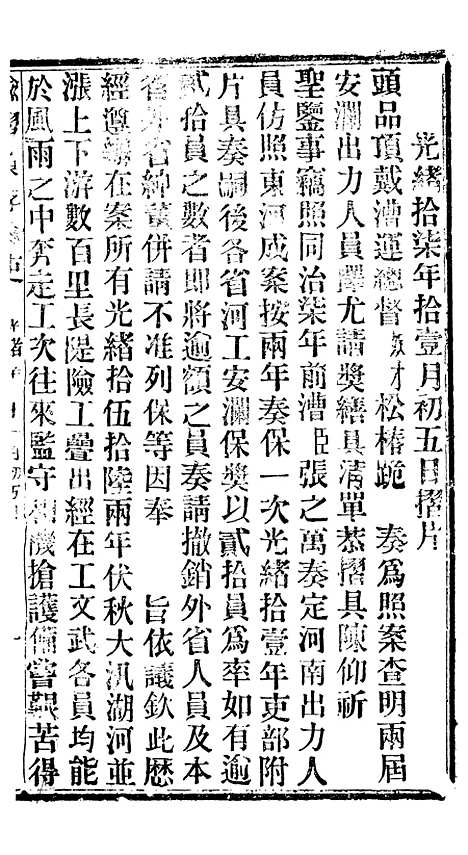 光緒拾柒年拾壹月初五日摺片
頭品頂戴漕運總督 松椿跪 奏爲照案查明兩屆
安瀾出力人員擇尤請獎繕具清單恭摺具陳仰祈
聖鑒事竊照同治柒年前漕臣張之萬奏定河南出力人
員仿照東河成案按兩年奏保一次光緒拾壹年吏部附
片具奏嗣後各省河工安瀾保獎以貳拾員爲率如有逾
貳拾員之數者即將逾額之員奏請撤銷外省人員及本
省外省紳董併請不准列保等因奉 旨依議欽此歷
經遵辦在案所有光緒拾伍拾陸兩年伏秋大汛湖河並
漲上下游數百里長隄險工疊出經在工文武各員均能
於風雨之中奔走工次往來監守相機搶護備嘗艱苦得